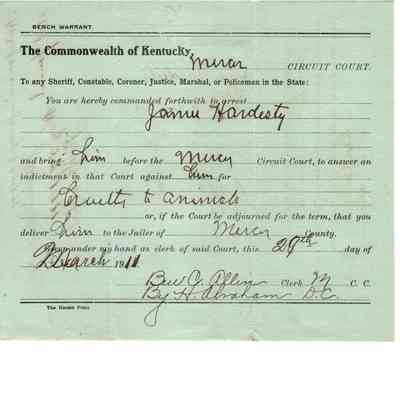 BENCH WARRANT
The Commonwealth of Kentucky,
Mercer CIRCUIT COURT.
To any Sheriff, Constable, Coroner, Justice, Marshal, or Policeman in the State:
You are hereby commanded forthwith to arrest
Jamie Hardesty
and bring him before the Mercer Circuit Court, to answer an
indictment in that Court against him for
Cruelty to animals
or, if the Court be adjourned for the term, that you
deliver him to the Jailer of Mercer County.
Given under my hand as clerk of said Court, this 29th day of
March 1911
Ben C. Allin Clerk M C. C.
By H. Abraham D.C.
The Herald Print